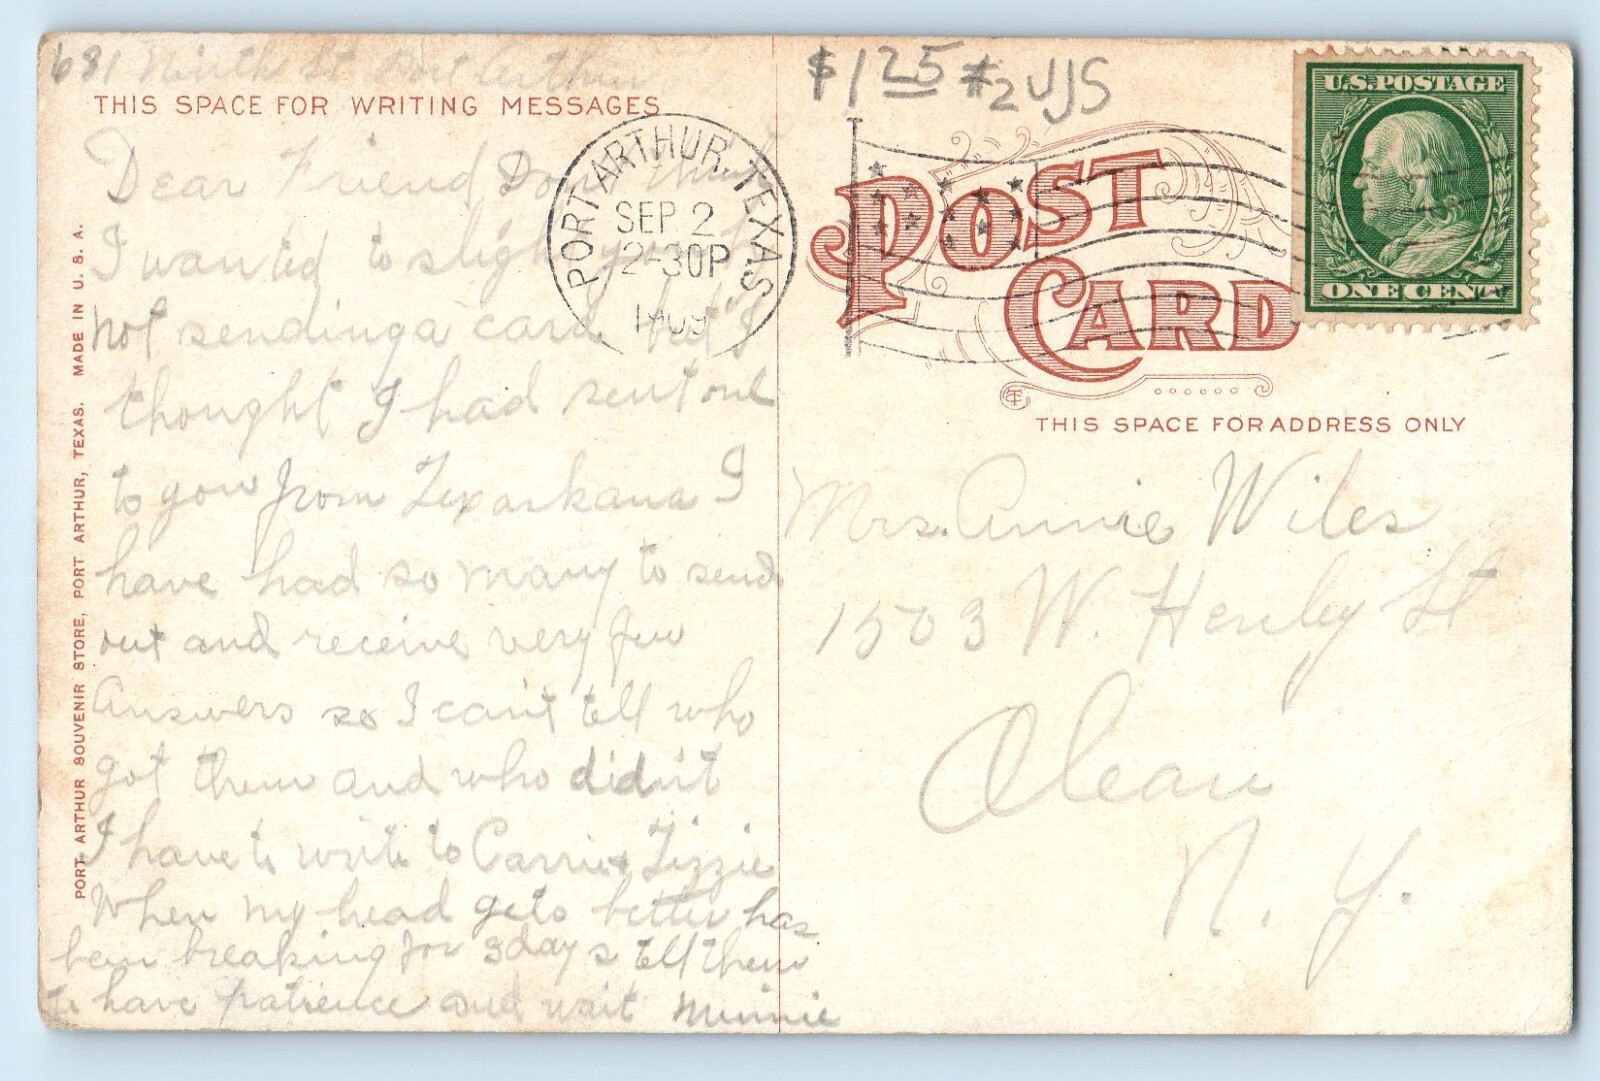 681 Ninth St Port Arthur
THIS SPACE FOR WRITING MESSAGES
Dear Friend Dont think
I wanted to slight you by
not sending a card but I
thought I had sent one
to you from Texarkana I
have had so many to send
out and receive very few
Answers so I can't tell who
got them and who didn't
I have to write to Carrie & Lizzie
When my head gets better has
been breaking for 3 days tell them
to have patience and wait Minnie
PORT ARTHUR SOUVENIR STORE, PORT ARTHUR, TEXAS. MADE IN U. S. A.
PORT ARTHUR, TEXAS
SEP 2
2-30P
1909
$1.25 #2 UJS
U.S. POSTAGE
ONE CENT
POST
CARD
THIS SPACE FOR ADDRESS ONLY
Mrs. Annie Wiles
1503 W. Henley St
Olean
N. Y.